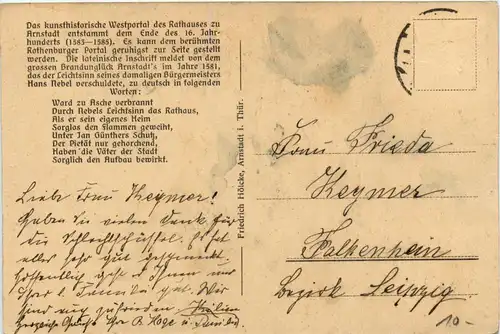 Das kunsthistorische Westportal des Rathauses zu
Arnstadt entstammt dem Ende des 16. Jahr-
hunderts (1583–1585). Es kann dem berühmten
Rothenburger Portal geruhigst zur Seite gestellt
werden. Die lateinische Inschrift meldet von dem
grossen Brandunglück Arnstadt's im Jahre 1581,
das der Leichtsinn seines damaligen Bürgermeisters
Hans Nebel verschuldete, zu deutsch in folgenden
Worten:
Ward zu Asche verbrannt
Durch Nebels Leichtsinn das Rathaus,
Als er sein eigenes Heim
Sorglos den Flammen geweiht,
Unter Jan Günthers Schutz,
Der Pietät nur gehorchend,
Haben die Väter der Stadt
Sorglich den Aufbau bewirkt.
Liebe Frau Keymer!
Haben Sie vielen Dank für
die Schlachtschüssel. Es hat
alles sehr gut geschmeckt.
Hoffentlich geht es Ihnen und
Ihrer l. Familie gut. Wir
sind auch zufrieden.
Friedrich Hölcke, Arnstadt i. Thür.
Frau Frieda
Keymer
Falkenhein
Bezirk Leipzig
10-